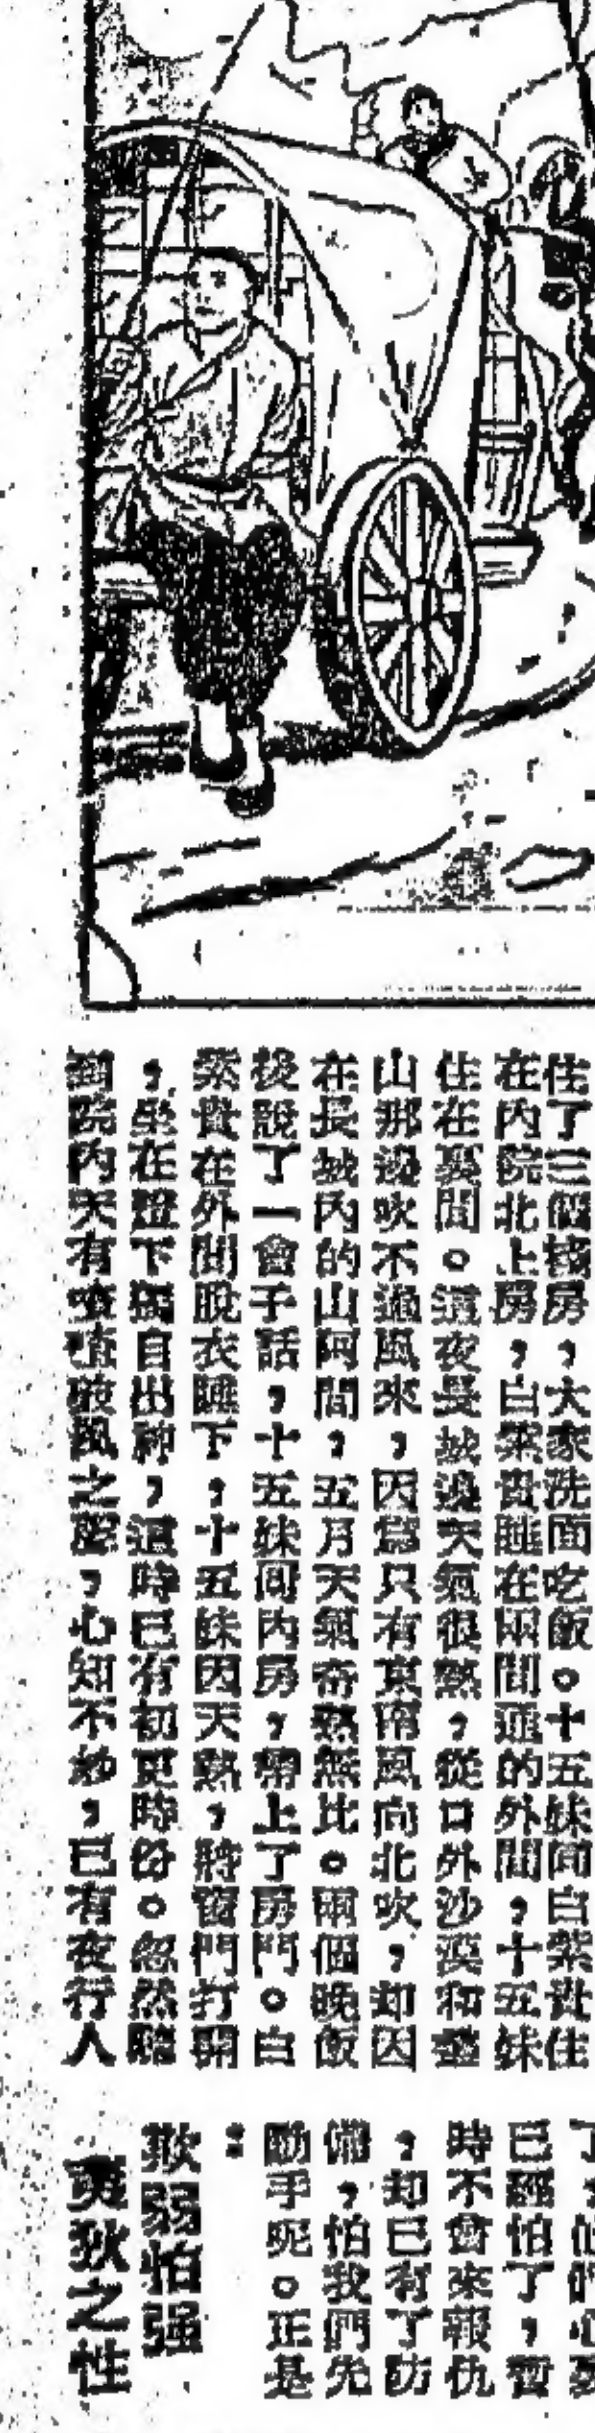 住了三個棧房,大家洗面吃飯。十五妹同白紫貴住
在內院北上房,白紫貴睡在兩間連的外間,十五妹
住在裏間。這夜長城邊天氣很熱,從口外沙漠和
山那邊吹不過風來,因爲只有東南風向北吹,却因
在長城內的山阿間,五月天氣奇熱無比。兩個晚飯
後說了一會子話,十五妹回內房,帶上了房門。白
紫貴在外間脫衣睡下,十五妹因天熱,將窗門打開
,坐在燈下獨自出神,這時已有初更時份。忽然聽
到院內天有破風之聲,心知不妙,已有夜行人
了,他們心裏
已經怕了,暫
時不會來報仇
,却已有了防
備,怕我們先
動手呢。正是
:
欺弱怕强
夷狄之性